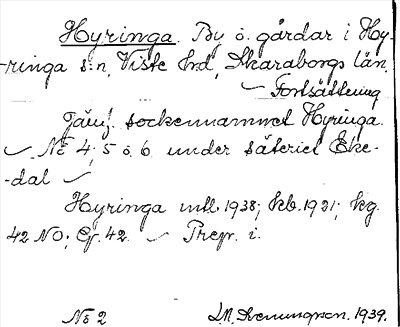 Hyringa. By o. gårdar i Hy-
-ringa s:n, Viste hd, Skaraborgs län.
Fortsättning
Jämf. sockennamnet Hyringa.
No 4, 5 o. 6 under säteriet Eke-
-dal
Hyringa mtl. 1938; kb. 1921; kg.
42 NO; Ef. 42. Prep. i.
No 2 1939.